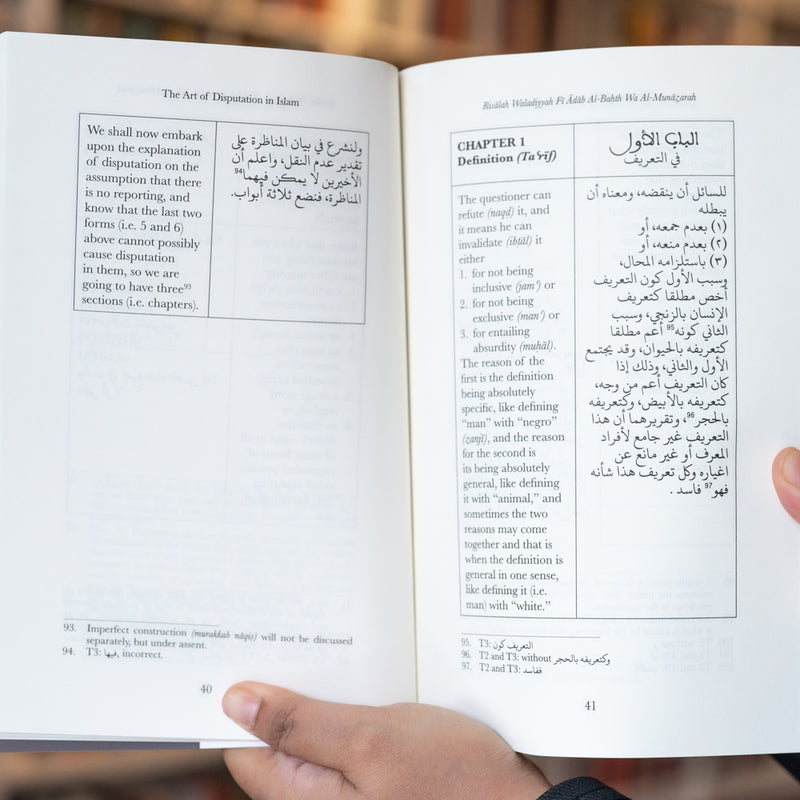 The Art of Disputation in Islam
We shall now embark
upon the explanation
of disputation on the
assumption that there
is no reporting, and
know that the last two
forms (i.e. 5 and 6)
above cannot possibly
cause disputation
in them, so we are
going to have three93
sections (i.e. chapters).
ولنشرع في بيان المناظرة على
تقدير عدم النقل، واعلم أن
الأخيرين لا يمكن فيهما94
المناظرة، فنضع ثلاثة أبواب.
93. Imperfect construction (murakkab nāqiṣ) will not be discussed
separately, but under assent.
94. T3: فيها, incorrect.
40
Risālah Waladiyyah Fī Ādāb Al-Baḥth Wa Al-Munāẓarah
CHAPTER 1
Definition (Ta‘rīf)
الباب الأول
في التعريف
The questioner can
refute (naqḍ) it, and
it means he can
invalidate (ibṭāl) it
either
1. for not being
inclusive (jam‘) or
2. for not being
exclusive (man‘) or
3. for entailing
absurdity (muḥāl).
The reason of the
first is the definition
being absolutely
specific, like defining
“man” with “negro”
(zanjī), and the reason
for the second is
its being absolutely
general, like defining
it with “animal,” and
sometimes the two
reasons may come
together and that is
when the definition is
general in one sense,
like defining it (i.e.
man) with “white.”
للسائل أن ينقضه، ومعناه أن
يبطله
(١) بعدم جمعه، أو
(٢) بعدم منعه، أو
(٣) باستلزامه المحال،
وسبب الأول كون التعريف
أخص مطلقا كتعريف
الإنسان بالزنجي، وسبب
الثاني كونه95 أعم مطلقا
كتعريفه بالحيوان، وقد يجتمع
الأول والثاني، وذلك إذا
كان التعريف أعم من وجه،
كتعريفه بالأبيض، وكتعريفه
بالحجر96، وتقريرهما أن هذا
التعريف غير جامع لأفراد
المعرف أو غير مانع عن
اغياره وكل تعريف هذا شأنه
فهو97 فاسد .
95. T3: التعريف كون
96. T2 and T3: without وكتعريفه بالحجر
97. T2 and T3: ففاسد
41